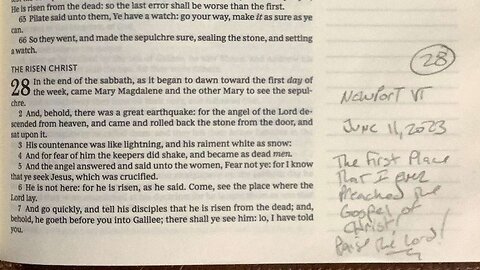 He is risen from the dead: so the last error shall be worse than the first.
65 Pilate said unto them, Ye have a watch: go your way, make it as sure as ye
can.
66 So they went, and made the sepulchre sure, sealing the stone, and setting
a watch.
THE RISEN CHRIST
28 In the end of the sabbath, as it began to dawn toward the first day of
the week, came Mary Magdalene and the other Mary to see the sepul-
chre.
2 And, behold, there was a great earthquake: for the angel of the Lord de-
scended from heaven, and came and rolled back the stone from the door, and
sat upon it.
3 His countenance was like lightning, and his raiment white as snow:
4 And for fear of him the keepers did shake, and became as dead men.
5 And the angel answered and said unto the women, Fear not ye: for I know
that ye seek Jesus, which was crucified.
6 He is not here: for he is risen, as he said. Come, see the place where the
Lord lay.
7 And go quickly, and tell his disciples that he is risen from the dead; and,
behold, he goeth before you into Galilee; there shall ye see him: lo, I have told
you.
28
Newport VT
June 11, 2023
The First Place
That I ever
Preached the
Gospel of
Christ!
Praise the Lord!